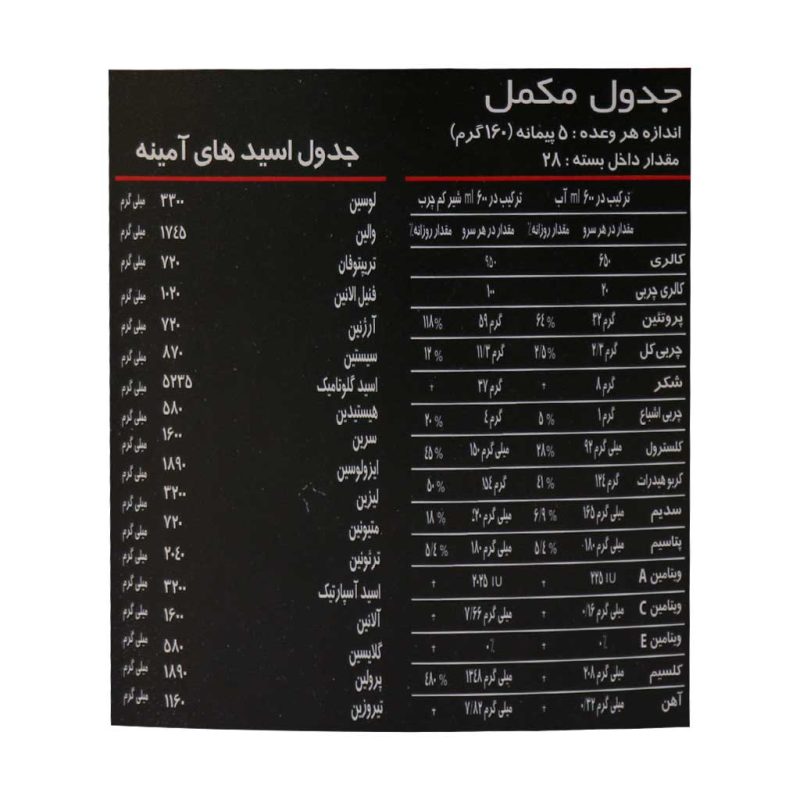 جدول مکمل
اندازه هر وعده : ۵ پیمانه (۱۶۰ گرم)
مقدار داخل بسته : ۲۸
ترکیب در ۶۰۰ ml آب ترکیب در ۶۰۰ ml شیر کم چرب
مقدار در هر سرو مقدار روزانه٪ مقدار در هر سرو مقدار روزانه٪
کالری ۶۵۰ ۹۵۰
کالری چربی ۲۰ ۱۰۰
پروتئین ۳۲ گرم ۶۴ % ۵۹ گرم ۱۱۸%
چربی کل ۲/۲ گرم ۲/۵% ۱۱/۳ گرم ۱۲ %
شکر ۸ گرم + ۳۷ گرم +
چربی اشباع ۱ گرم ۵ % ۴ گرم ۲۰ %
کلسترول ۹۲ میلی گرم ۲۸% ۱۵۰ میلی گرم ۴۵%
کربوهیدرات ۱۲۴ گرم ۴۱ % ۱۵۴ گرم ۵۰ %
سدیم ۱۶۵ میلی گرم ۶/۹ % میلی گرم ۱۸ %
پتاسیم میلی گرم ۵/۴ % ۱۸۰ میلی گرم ۵/۴ %
ویتامین A ۲۲۵ IU + ۲۰۲۵ IU +
ویتامین C ۰/۱۶ میلی گرم + ۷/۶۶ میلی گرم +
ویتامین E ۰٪ + ۰٪ +
کلسیم ۲۰۸ میلی گرم ۱۲۴۸ میلی گرم ۴۸۰ %
آهن ۰/۳۲ میلی گرم + ۷/۸۲ میلی گرم +
جدول اسید های آمینه
لوسین ۳۳۰۰ میلی گرم
والین ۱۷۴۵ میلی گرم
تریپتوفان ۷۲۰ میلی گرم
فنیل الانین ۱۰۲۰ میلی گرم
آرژنین ۷۲۰ میلی گرم
سیستین ۸۷۰ میلی گرم
اسید گلوتامیک ۵۲۳۵ میلی گرم
هیستیدین ۵۸۰ میلی گرم
سرین ۱۶۰۰ میلی گرم
ایزولوسین ۱۸۹۰ میلی گرم
لیزین ۳۲۰۰ میلی گرم
متیونین ۷۲۰ میلی گرم
ترئونین ۲۰۴۰ میلی گرم
اسید آسپارتیک ۳۲۰۰ میلی گرم
آلانین ۱۶۰۰ میلی گرم
گلایسین ۵۸۰ میلی گرم
پرولین ۱۸۹۰ میلی گرم
تیروزین ۱۱۶۰ میلی گرم